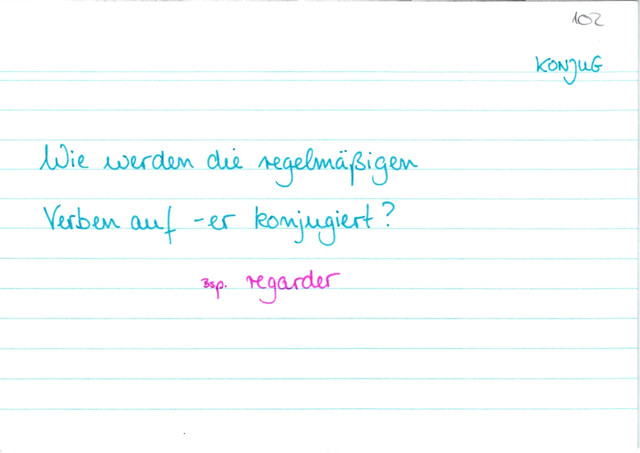 102
KONJUG
Wie werden die regelmäßigen
Verben auf -er konjugiert?
Bsp. regarder